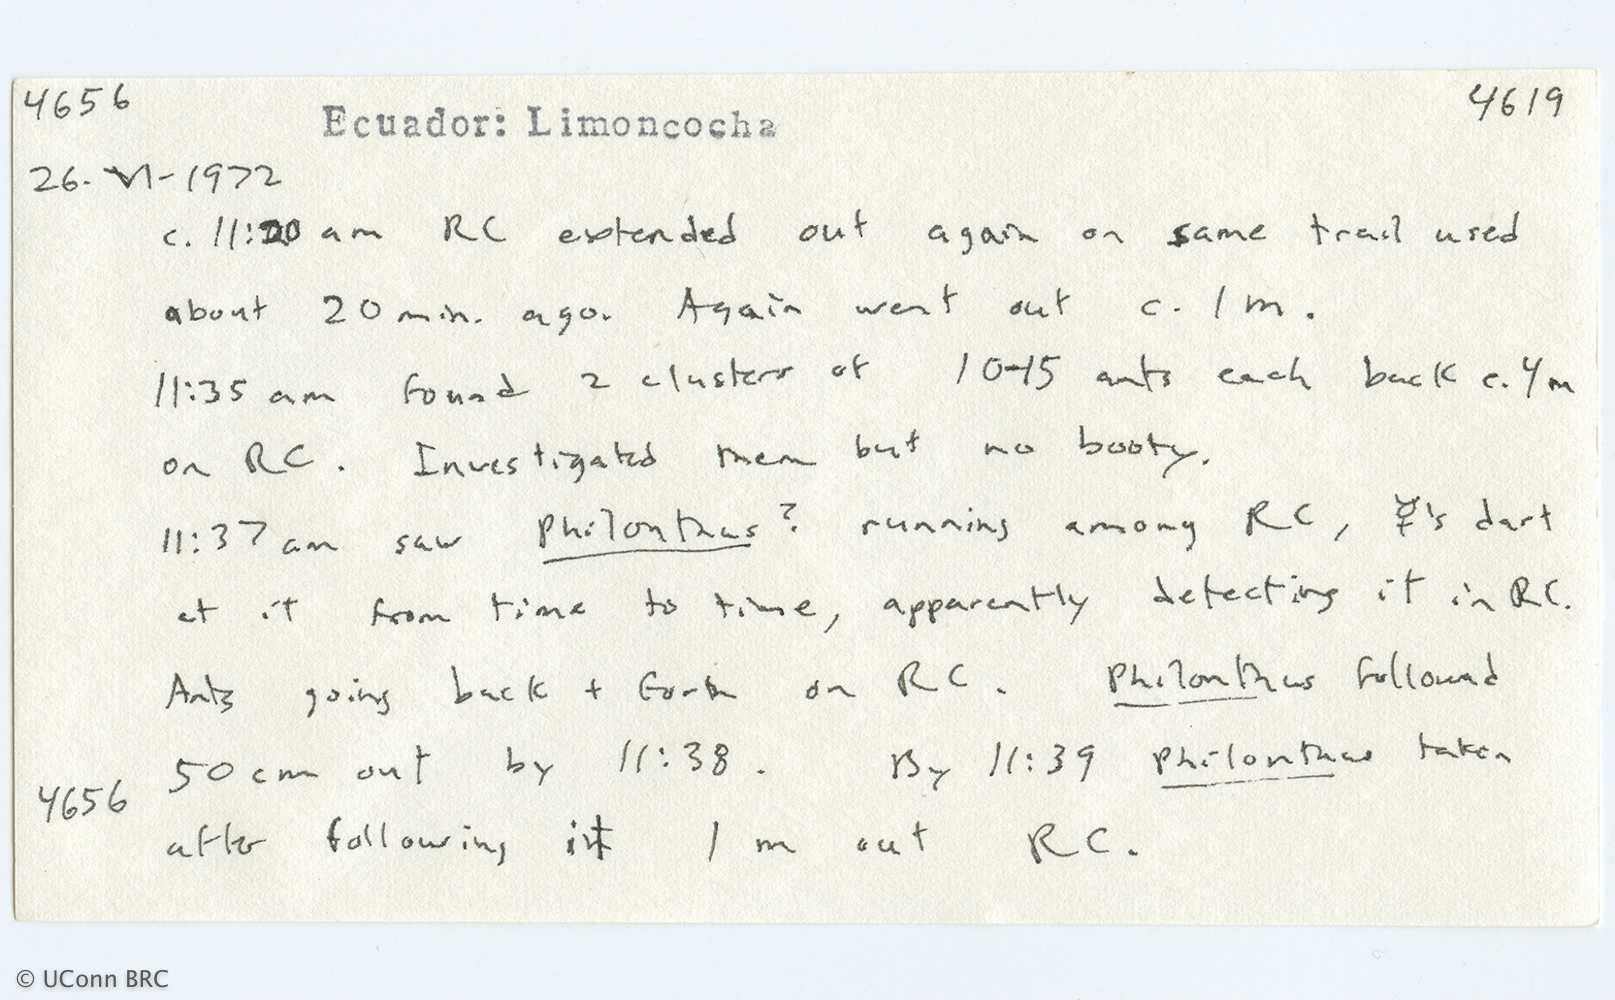 4656
Ecuador: Limoncocha
4619
26-VI-1972
c. 11:20 am RC extended out again on same trail used
about 20 min. ago. Again went out c. 1 m.
11:35 am found 2 clusters of 10-15 ants each back c. 4 m
on RC. Investigated them but no booty.
11:37 am saw Philonthus? running among RC, ☿'s dart
at it from time to time, apparently detecting it in RC.
Ants going back + forth on RC. Philonthus followed
50 cm out by 11:38. By 11:39 Philonthus taken
4656
after following it 1 m out RC.
© UConn BRC